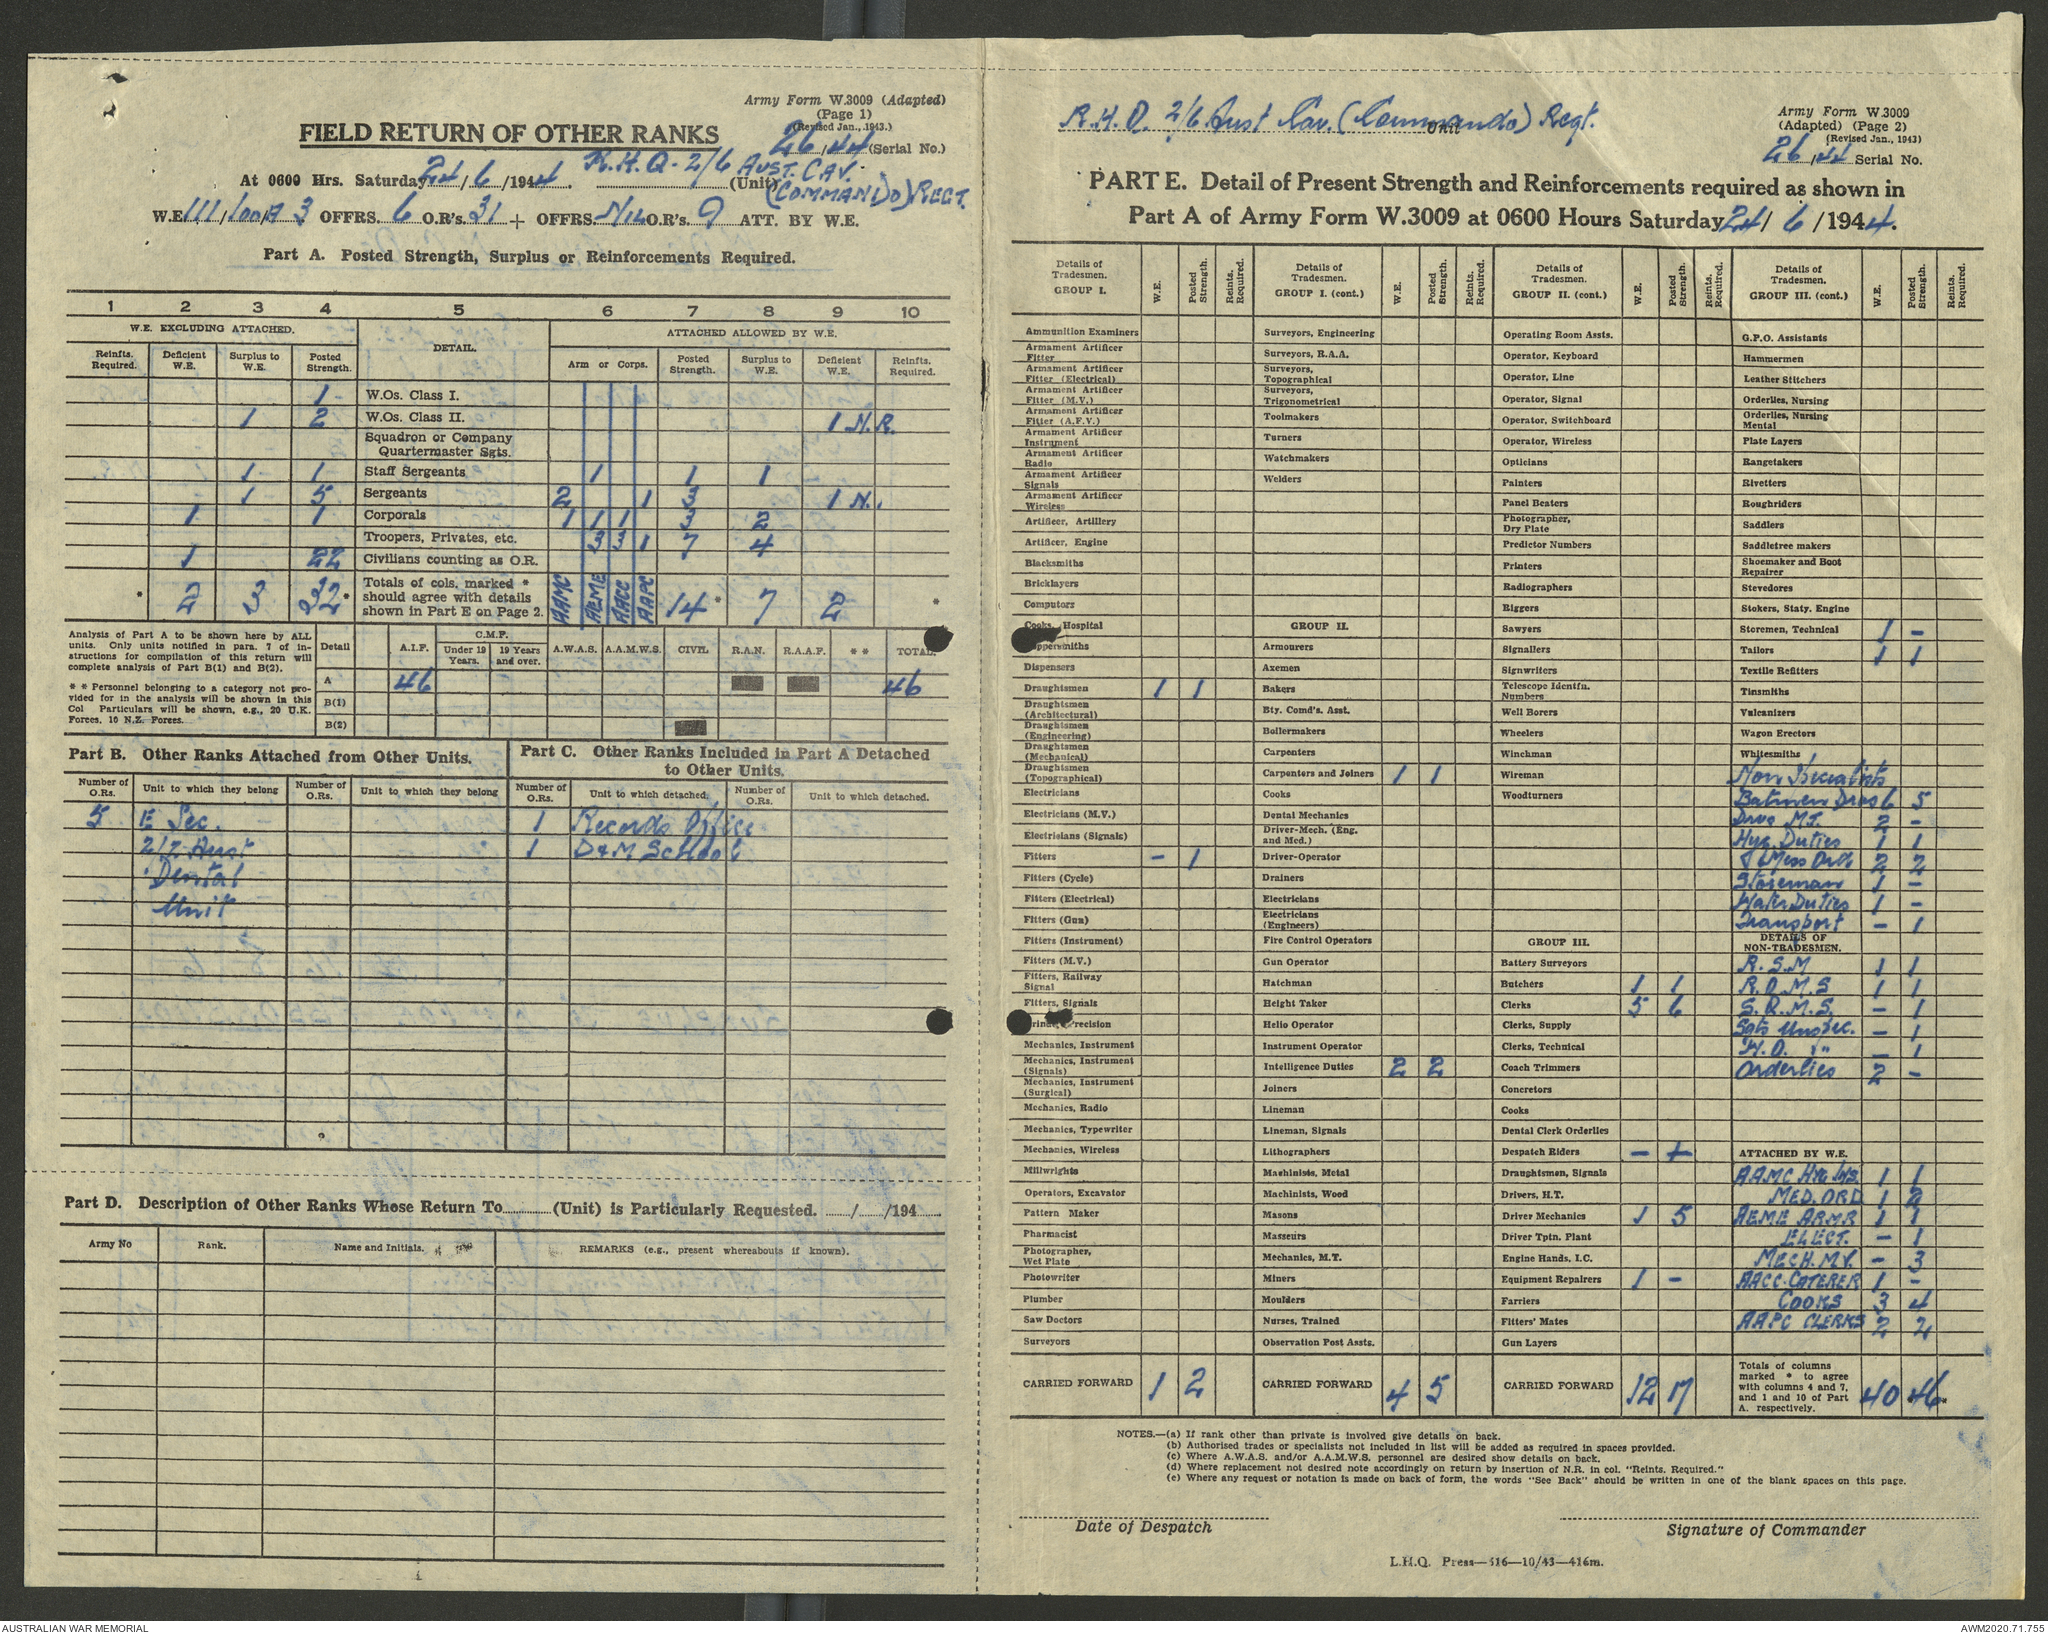 Army Form W.3009 (Adapted)
(Page 1)
(Revised Jan., 1943.)
26/44 (Serial No.)
FIELD RETURN OF OTHER RANKS
At 0600 Hrs. Saturday 24/6/1944. R.H.Q - 2/6 AUST. CAV. (Unit) (COMMANDO) REGT.
W.E. 111/100A/3 OFFRS. 6 O.R's. 31 + OFFRS. NIL O.R's. 9 ATT. BY W.E.
Part A. Posted Strength, Surplus or Reinforcements Required.
1 2 3 4 5 6 7 8 9 10
W.E. EXCLUDING ATTACHED. DETAIL. ATTACHED ALLOWED BY W.E.
Reinfts. Required. Deficient W.E. Surplus to W.E. Posted Strength. Arm or Corps. Posted Strength. Surplus to W.E. Deficient W.E. Reinfts. Required.
1 - W.Os. Class I.
1 2 W.Os. Class II. 1 N.R.
Squadron or Company Quartermaster Sgts.
1 - 1 - Staff Sergeants 1 1 1
1 5 Sergeants 2 1 3 1 N.
1 1 Corporals 1 1 1 3 2
Troopers, Privates, etc. 3 3 1 7 4
1 22 Civilians counting as O.R.
* 2 3 32 * Totals of cols. marked * should agree with details shown in Part E on Page 2. AAMC AEME AACC AAPC 14 * 7 2 *
Analysis of Part A to be shown here by ALL units. Only units notified in para. 7 of instructions for compilation of this return will complete analysis of Part B(1) and B(2).
* * Personnel belonging to a category not provided for in the analysis will be shown in this Col Particulars will be shown, e.g., 20 U.K. Forces, 10 N.Z. Forces.
Detail A.I.F. C.M.F. Under 19 Years. 19 Years and over. A.W.A.S. A.A.M.W.S. CIVIL R.A.N. R.A.A.F. * * TOTAL.
A 46 46
B(1)
B(2)
Part B. Other Ranks Attached from Other Units.
Part C. Other Ranks Included in Part A Detached to Other Units.
Number of O.Rs. Unit to which they belong Number of O.Rs. Unit to which they belong Number of O.Rs. Unit to which detached. Number of O.Rs. Unit to which detached.
5 E Sec. 1 Records Office
2/2 Aust 1 D&M School
Dental
Unit
Part D. Description of Other Ranks Whose Return To (Unit) is Particularly Requested. / /194
Army No Rank. Name and Initials. REMARKS (e.g., present whereabouts if known).
R.H.Q. 2/6 Aust Cav. (Commando) Regt.
Unit
Army Form W.3009
(Adapted) (Page 2)
(Revised Jan., 1943)
26/44 Serial No.
PART E. Detail of Present Strength and Reinforcements required as shown in
Part A of Army Form W.3009 at 0600 Hours Saturday 24/6/1944.
Details of Tradesmen. GROUP I. W.E. Posted Strength. Reints. Required.
Ammunition Examiners
Armament Artificer Fitter
Armament Artificer Fitter (Electrical)
Armament Artificer Fitter (M.V.)
Armament Artificer Fitter (A.F.V.)
Armament Artificer Instrument
Armament Artificer Radio
Armament Artificer Signals
Armament Artificer Wireless
Artificer, Artillery
Artificer, Engine
Blacksmiths
Bricklayers
Computors
Cooks, Hospital
Coppersmiths
Dispensers
Draughtsmen 1 1
Draughtsmen (Architectural)
Draughtsmen (Engineering)
Draughtsmen (Mechanical)
Draughtsmen (Topographical)
Electricians
Electricians (M.V.)
Electricians (Signals)
Fitters - 1
Fitters (Cycle)
Fitters (Electrical)
Fitters (Gun)
Fitters (Instrument)
Fitters (M.V.)
Fitters, Railway Signal
Fitters, Signals
Precision
Mechanics, Instrument
Mechanics, Instrument (Signals)
Mechanics, Instrument (Surgical)
Mechanics, Radio
Mechanics, Typewriter
Mechanics, Wireless
Millwrights
Operators, Excavator
Pattern Maker
Pharmacist
Photographer, Wet Plate
Photowriter
Plumber
Saw Doctors
Surveyors
CARRIED FORWARD 1 2
Details of Tradesmen. GROUP I. (cont.) W.E. Posted Strength. Reints. Required.
Surveyors, Engineering
Surveyors, R.A.A.
Surveyors, Topographical
Surveyors, Trigonometrical
Toolmakers
Turners
Watchmakers
Welders
GROUP II.
Armourers
Axemen
Bakers
Bty. Comd's. Asst.
Boilermakers
Carpenters
Carpenters and Joiners 1 1
Cooks
Dental Mechanics
Driver-Mech. (Eng. and Med.)
Driver-Operator
Drainers
Electricians
Electricians (Engineers)
Fire Control Operators
Gun Operator
Hatchman
Height Taker
Helio Operator
Instrument Operator
Intelligence Duties 2 2
Joiners
Lineman
Lineman, Signals
Lithographers
Machinists, Metal
Machinists, Wood
Masons
Masseurs
Mechanics, M.T.
Miners
Moulders
Nurses, Trained
Observation Post Assts.
CARRIED FORWARD 4 5
Details of Tradesmen. GROUP II. (cont.) W.E. Posted Strength. Reints. Required.
Operating Room Assts.
Operator, Keyboard
Operator, Line
Operator, Signal
Operator, Switchboard
Operator, Wireless
Opticians
Painters
Panel Beaters
Photographer, Dry Plate
Predictor Numbers
Printers
Radiographers
Riggers
Sawyers
Signallers
Signwriters
Telescope Identfn. Numbers
Well Borers
Wheelers
Winchman
Wireman
Woodturners
GROUP III.
Battery Surveyors
Butchers 1 1
Clerks 5 6
Clerks, Supply
Clerks, Technical
Coach Trimmers
Concretors
Cooks
Dental Clerk Orderlies
Despatch Riders -
Draughtsmen, Signals
Drivers, H.T.
Driver Mechanics 1 5
Driver Tptn. Plant
Engine Hands, I.C.
Equipment Repairers 1 -
Farriers
Fitters' Mates
Gun Layers
CARRIED FORWARD 12 17
Details of Tradesmen. GROUP III. (cont.) W.E. Posted Strength. Reints. Required.
G.P.O. Assistants
Hammermen
Leather Stitchers
Orderlies, Nursing
Orderlies, Nursing Mental
Plate Layers
Rangetakers
Rivetters
Roughriders
Saddlers
Saddletree makers
Shoemaker and Boot Repairer
Stevedores
Stokers, Staty. Engine
Storemen, Technical 1 -
Tailors 1 1
Textile Refitters
Tinsmiths
Vulcanizers
Wagon Erectors
Whitesmiths
Non Specialists
Batmen Dvrs 6 5
Dvrs M.T. 2 -
Hyg. Duties 1 1
Mess Ord 2 2
Storeman 1 -
Water Duties 1 -
Transport - 1
DETAILS OF NON-TRADESMEN.
R.S.M 1 1
R.Q.M.S 1 1
S.Q.M.S. - 1
Sgts Unspec. - 1
W.O. " - 1
Orderlies 2 -
ATTACHED BY W.E.
AAMC Hyg 1 1
MED. ORD 1 2
AEME ARMR 1 1
ELECT. - 1
MECH. MV. - 3
AACC. CATERER 1 -
COOKS 3 4
AAPC CLERKS 2 2
Totals of columns marked * to agree with columns 4 and 7, and 1 and 10 of Part A. respectively. 40 46*
NOTES.—(a) If rank other than private is involved give details on back.
(b) Authorised trades or specialists not included in list will be added as required in spaces provided.
(c) Where A.W.A.S. and/or A.A.M.W.S. personnel are desired show details on back.
(d) Where replacement not desired note accordingly on return by insertion of N.R. in col. "Reints. Required."
(e) Where any request or notation is made on back of form, the words "See Back" should be written in one of the blank spaces on this page.
Date of Despatch
Signature of Commander
L.H.Q. Press—316—10/43—416m.
AUSTRALIAN WAR MEMORIAL
AWM2020.71.755